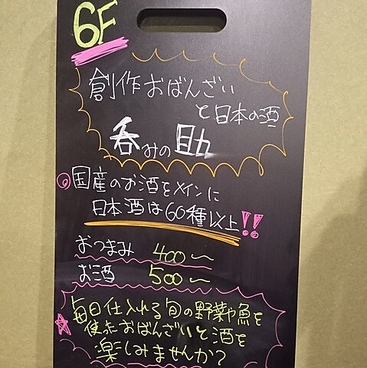 6F
創作おばんざい
と日本の酒
呑みの助
国産のお酒をメインに
日本酒は60種以上!!
おつまみ 400〜
お酒 500〜
毎日仕入れる旬の野菜や魚を
使ったおばんざいと酒を
楽しみませんか?